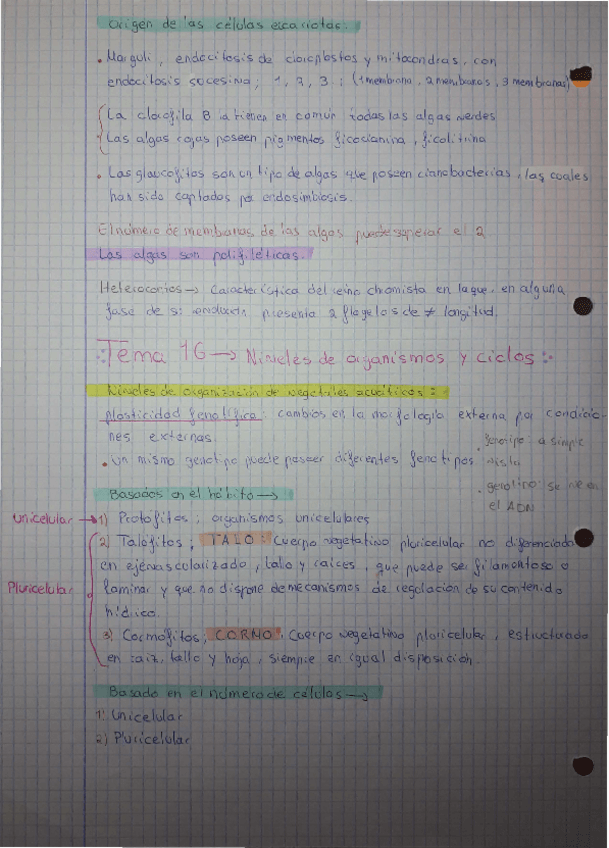 Origen de las células eucariotas:
• Marguli, endocitosis de cloroplastos y mitocondras, con
endocitosis sucesiva; 1, 2, 3 ; (1 membrana, 2 membranas, 3 membranas)
La clorofila B la tienen en común todas las algas verdes
Las algas rojas poseen pigmentos ficocianina, ficolitrina
• Las glaucofitos son un tipo de algas que poseen cianobacterias, las cuales
has sido captados por endosimbiosis.
El número de membranas de las algas puede superar el 2
Las algas son polifiléticas.
Heterocontos → Característica del reino chromista en la que, en alguna
fase de su evolución presenta 2 flagelos de ≠ longitud.
Tema 16 → Niveles de organismos y ciclos:
Niveles de organización de vegetales acuáticos:
plasticidad fenotífica: cambios en la morfología externa por condicio-
nes externas.
• Un mismo genotipo puede poseer diferentes fenotipos
• fenotipo: a simple
vista
• genotipo: se ve en
el ADN
Basados en el hábito →
Unicelular → 1) Protófitos; organismos unicelulares
2) Talófitos; TALO: Cuerpo vegetativo pluricelular no diferenciado
en eje vascularizado, tallo y raíces, que puede ser filamentoso o
Pluricelular laminar y que no dispone de mecanismos de regulación de su contenido
hídrico.
3) Cormófitos; CORMO: Cuerpo vegetativo pluricelular, estructurado
en raíz, tallo y hoja, siempre en igual disposición.
Basado en el número de células →
1) Unicelular
2) Pluricelular